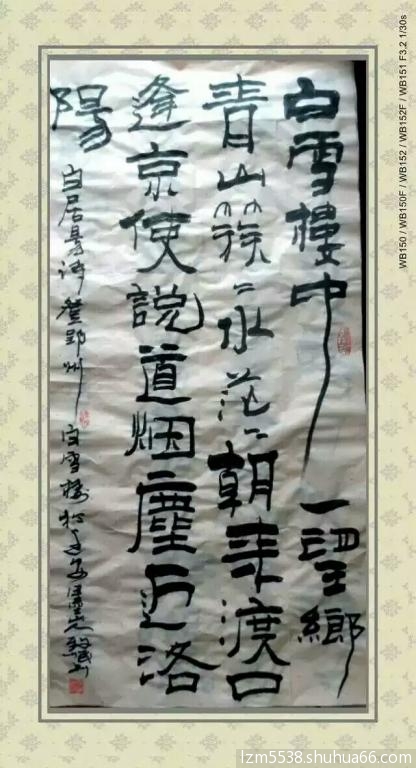 白雪樓中一望鄉
青山簇〻水茫〻朝来渡口
逢京使說道烟塵近洛
陽
白居易詩登郢州白雪樓
WB150 / WB150F / WB152 / WB152F / WB151 F3.2 1/30s
lzm5538.shuhua66.com